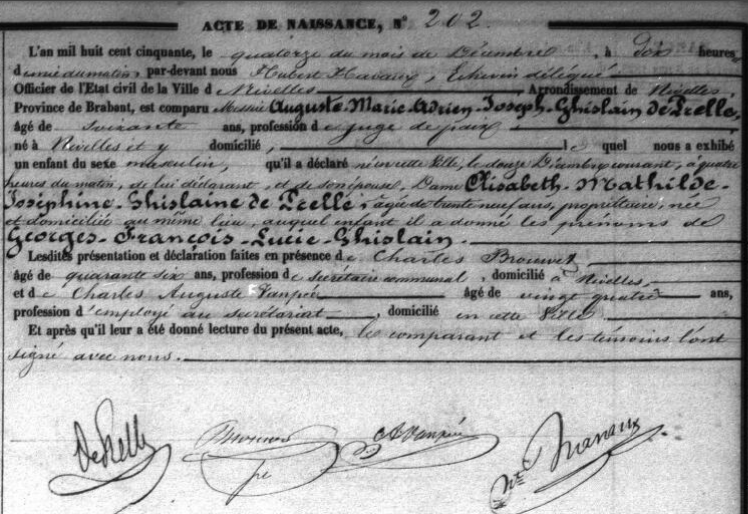 ACTE DE NAISSANCE, N° 202.
L'an mil huit cent cinquante, le quatorze du mois de Décembre, à dix heures
d emie du matin, par-devant nous Hubert Échevin délégué
Officier de l'Etat civil de la Ville d e Nivelles, Arrondissement de Nivelles,
Province de Brabant, est comparu Messire Auguste-Marie-Adrien-Joseph-Ghislain de Prelle,
âgé de soixante ans, profession d e juge de paix
né à Nivelles et y domicilié, le quel nous a exhibé
un enfant du sexe masculin, qu'il a déclaré né en cette Ville, le douze Décembre courant, à quatre
heures du matin, de lui déclarant, et de son épouse, Dame Elisabeth-Mathilde-
Joséphine-Ghislaine de Prelle, âgée de trente neuf ans, propriétaire, née
et domiciliée au même lieu, auquel enfant il a donné les prénoms de
Georges-François-Lucie-Ghislain.
Lesdites présentation et déclaration faites en présence d e Charles Brouwet
âgé de quarante six ans, profession d e secrétaire communal, domicilié à Nivelles,
et d e Charles Auguste Vanpée âgé de vingt quatre ans,
profession d'employé au secrétariat, domicilié en cette Ville.
Et après qu'il leur a été donné lecture du présent acte, le comparant et les témoins l'ont
signé avec nous.
de Prelle Brouwet CAVanpée